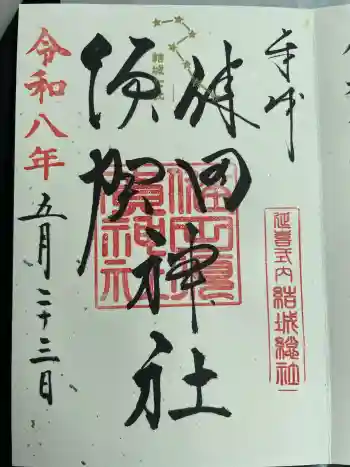 奉拝
延喜式内 結城總社
健田
須賀
神社
健田須
賀神社
令和八年
五月二十三日